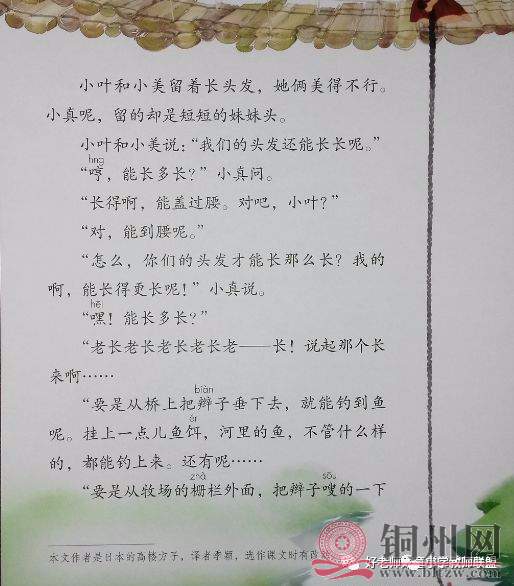 小叶和小美留着长头发，她俩美得不行。
小真呢，留的却是短短的妹妹头。
小叶和小美说：“我们的头发还能长长呢。”
hng
“哼，能长多长？”小真问。
“长得啊，能盖过腰。对吧，小叶？”
“对，能到腰呢。”
“怎么，你们的头发才能长那么长？我的
啊，能长得更长呢！”小真说。
hēi
“嘿！能长多长？”
“老长老长老长老长老——长！说起那个长
来啊……
biàn
“要是从桥上把辫子垂下去，就能钓到鱼
ěr
呢。挂上一点儿鱼饵，河里的鱼，不管什么样
的，都能钓上来。还有呢……
zhà
sōu
“要是从牧场的栅栏外面，把辫子嗖的一下
本文作者是日本的高楼方子，译者季颖，选作课文时有改
好老师
小学教师联盟
铜州网
www.btzw.com